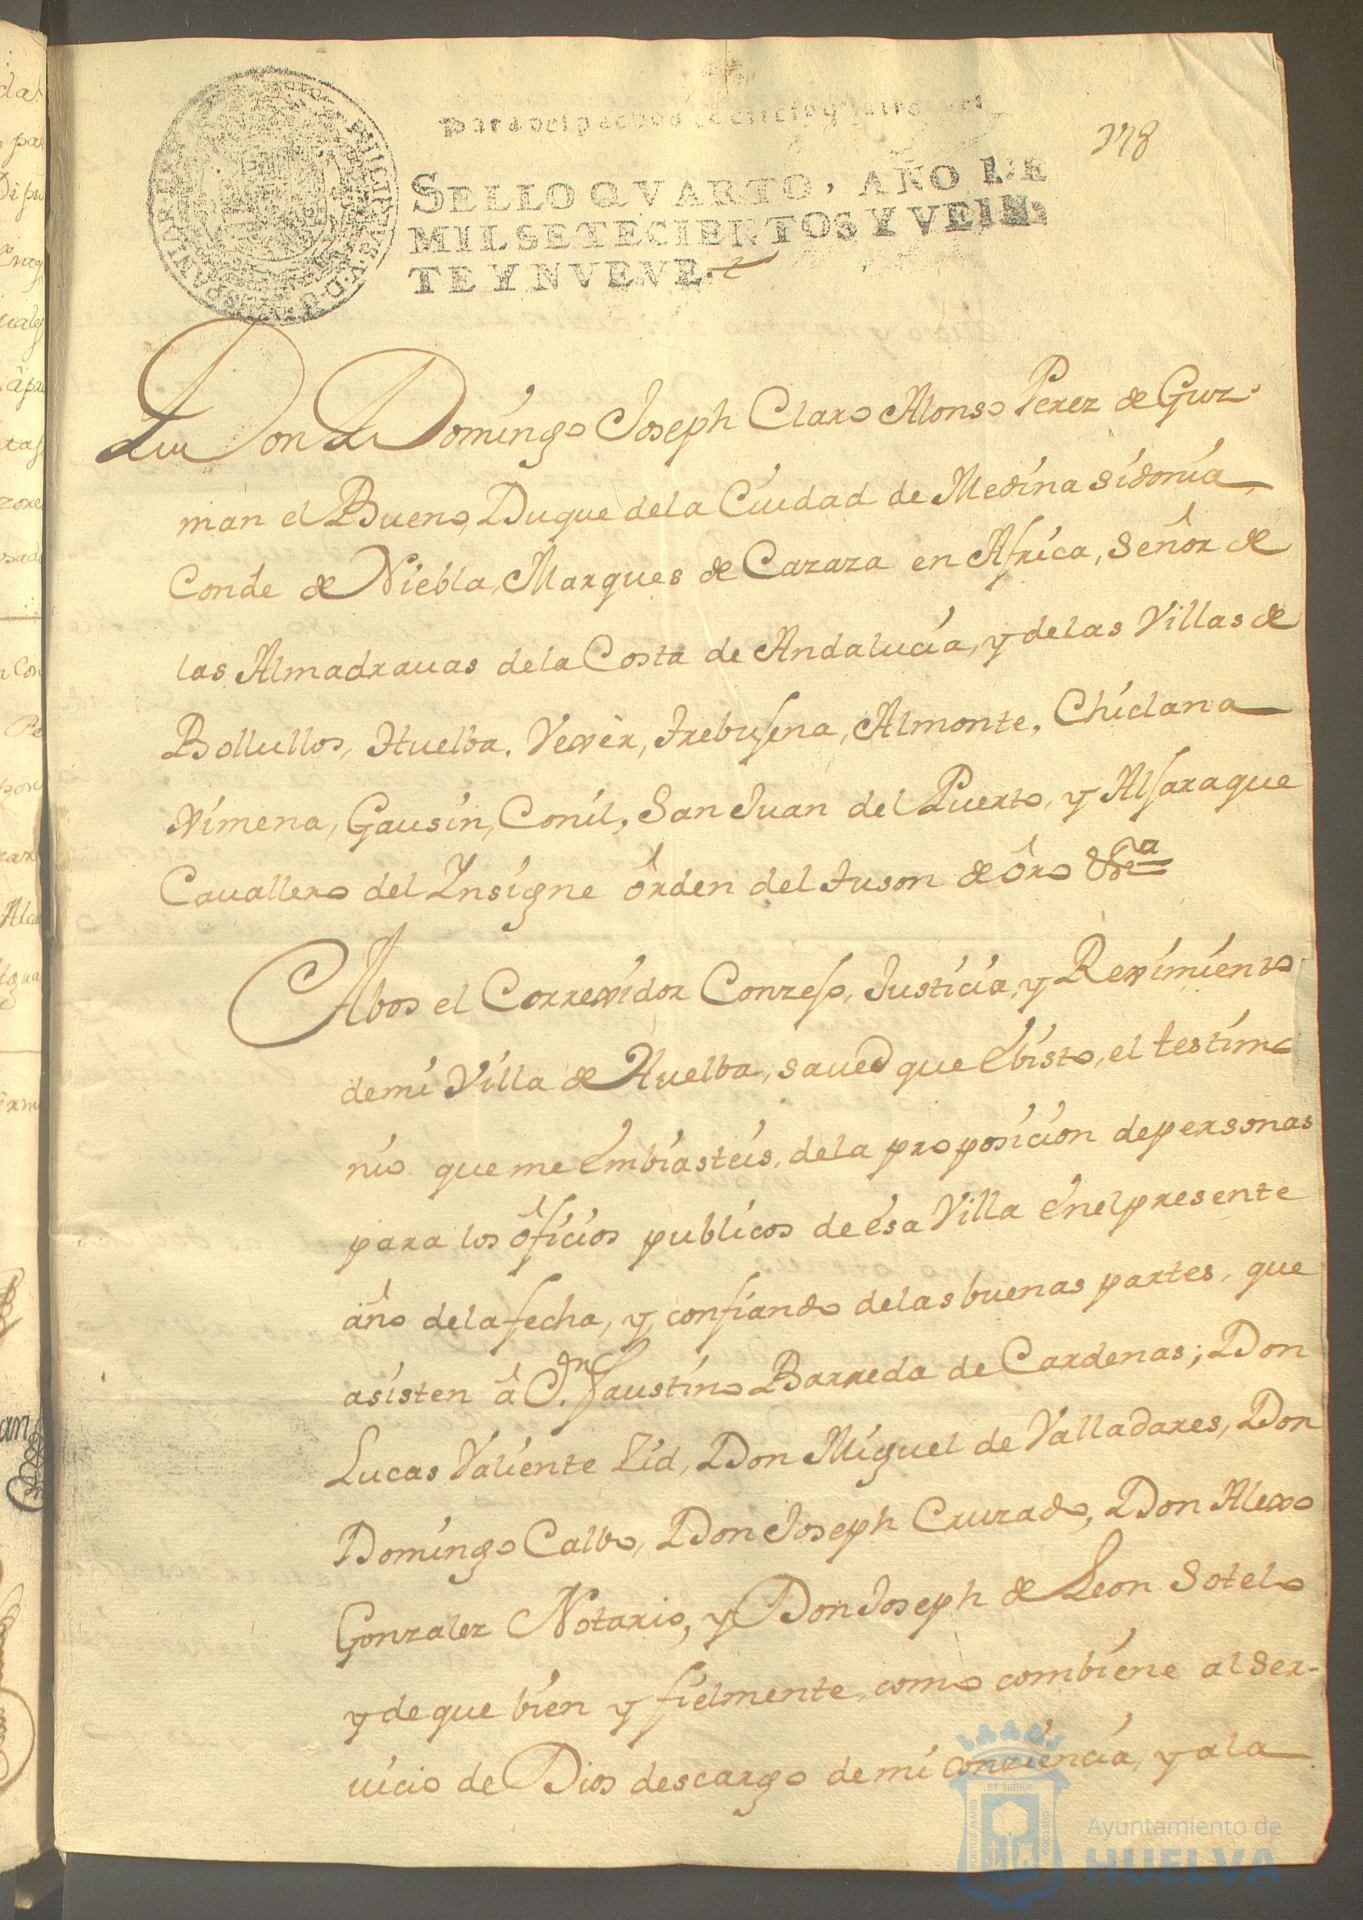 para despachos de oficio quatro mrs
178
SELLO QVARTO, AÑO DE
MIL SETECIENTOS Y VEIN
TE Y NVEVE.
Don Domingo Joseph Claro Alonso Perez de Guz
man el Bueno, Duque dela Ciudad de Medina Sidonia
Conde de Niebla, Marques de Cazaza en Africa, Señor de
las Almadrauas dela Costa de Andalucia, y delas Villas de
Bollullos, Huelba, Vexèr, Trebusena, Almonte, Chiclana
Ximena, Gausin, Conil, San Juan del Puerto, y Aljaraque
Cauallero del Ynsigne órden del tuson de óro &ra
Abos el Correxidor Conzejo, Justicia, y Reximiento
demi Villa de Huelba, saued que é bisto, el testimo
nio que me émbiasteis, dela proposicion depersonas
para los óficios publicos de ésa Villa énelpresente
áño dela fecha, y confiando delas buenas partes, que
asisten â Dn. Faustino Barreda de Cardenas; Don
Lucas Valiente Zid, Don Miguel de Valladares, Don
Domingo Calbo, Don Joseph Cruzado, Don Alexo
Gonzalez Notario, y Don Joseph de Leon Sotelo
y de que bien y fielmente, como combiene al ser-
uicio de Dios descargo demi conziencia, y ala
PORTUS MARIS
ET TERRA
CUSTODIA
Ayuntamiento de
HUELVA